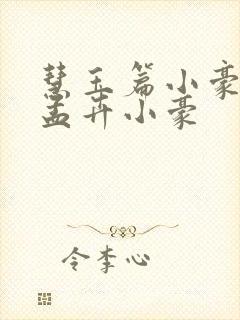 慧玉篇小豪
孟卉小豪
令李心